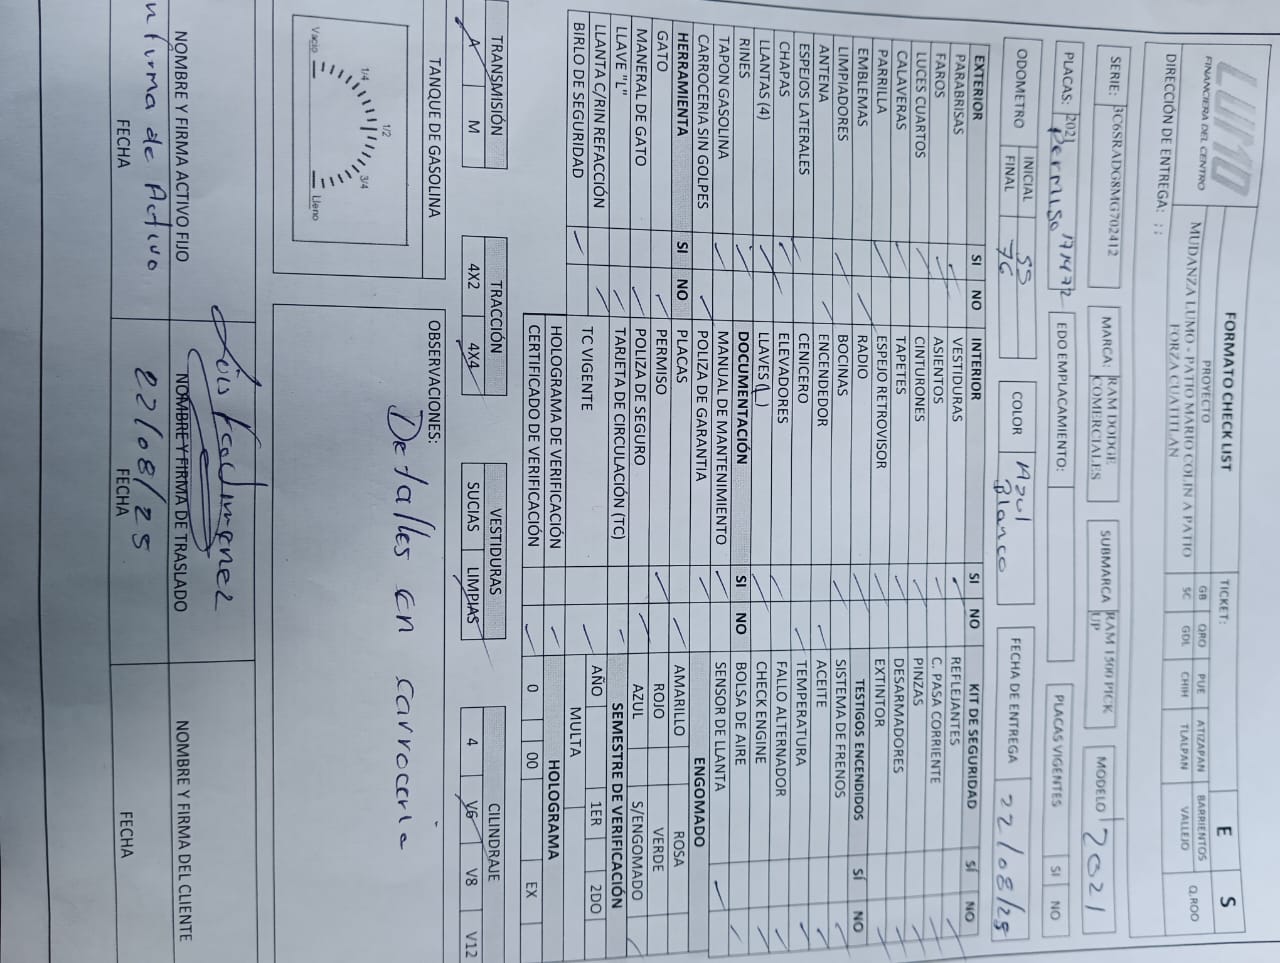 LUMO
FINANCIERA DEL CENTRO
FORMATO CHECK LIST
E S
PROYECTO
MUDANZA LUMO - PATIO MARIO COLIN A PATIO
FORZA CUATITLAN
TICKET:
GB QRO PUE ATIZAPAN BARRIENTOS Q.ROO
SC GDL CHIH TLALPAN VALLEJO
DIRECCIÓN DE ENTREGA: ; ;
SERIE: 3C6SRADG8MG702412
MARCA: RAM DODGE
COMERCIALES
SUBMARCA RAM 1500 PICK
UP
MODELO 2021
PLACAS: 2021
Permiso
EDO EMPLACAMIENTO:
PLACAS VIGENTES SI NO
ODOMETRO INICIAL 55
FINAL 76
COLOR Azul
Blanco
FECHA DE ENTREGA 22/08/25
EXTERIOR SI NO
PARABRISAS
FAROS
LUCES CUARTOS
CALAVERAS
PARRILLA
EMBLEMAS
LIMPIADORES
ANTENA
ESPEJOS LATERALES
CHAPAS
LLANTAS (4)
RINES
TAPON GASOLINA
CARROCERIA SIN GOLPES
HERRAMIENTA SI NO
GATO
MANERAL DE GATO
LLAVE "L"
LLANTA C/RIN REFACCIÓN
BIRLO DE SEGURIDAD
INTERIOR SI NO
VESTIDURAS
ASIENTOS
CINTURONES
TAPETES
ESPEJO RETROVISOR
RADIO
BOCINAS
ENCENDEDOR
CENICERO
ELEVADORES
LLAVES( )
DOCUMENTACIÓN SI NO
MANUAL DE MANTENIMIENTO
POLIZA DE GARANTIA
PLACAS
PERMISO
POLIZA DE SEGURO
TARJETA DE CIRCULACIÓN (TC)
TC VIGENTE
HOLOGRAMA DE VERIFICACIÓN
CERTIFICADO DE VERIFICACIÓN
KIT DE SEGURIDAD SÍ NO
REFLEJANTES
C. PASA CORRIENTE
PINZAS
DESARMADORES
EXTINTOR
TESTIGOS ENCENDIDOS SÍ NO
SISTEMA DE FRENOS
ACEITE
TEMPERATURA
FALLO ALTERNADOR
CHECK ENGINE
BOLSA DE AIRE
SENSOR DE LLANTA
ENGOMADO
AMARILLO ROSA
ROJO VERDE
AZUL S/ENGOMADO
SEMESTRE DE VERIFICACIÓN
AÑO 1ER 2DO
MULTA
HOLOGRAMA
0 00 EX
TRANSMISIÓN
A M
TRACCIÓN
4X2 4X4
VESTIDURAS
SUCIAS LIMPIAS
CILINDRAJE
4 V6 V8 V12
TANQUE DE GASOLINA
Vacio 1/4 1/2 3/4 Lleno
OBSERVACIONES:
Detalles en carrocería
NOMBRE Y FIRMA ACTIVO FIJO
firma de Activo
FECHA
NOMBRE Y FIRMA DE TRASLADO
22/08/25
FECHA
NOMBRE Y FIRMA DEL CLIENTE
FECHA